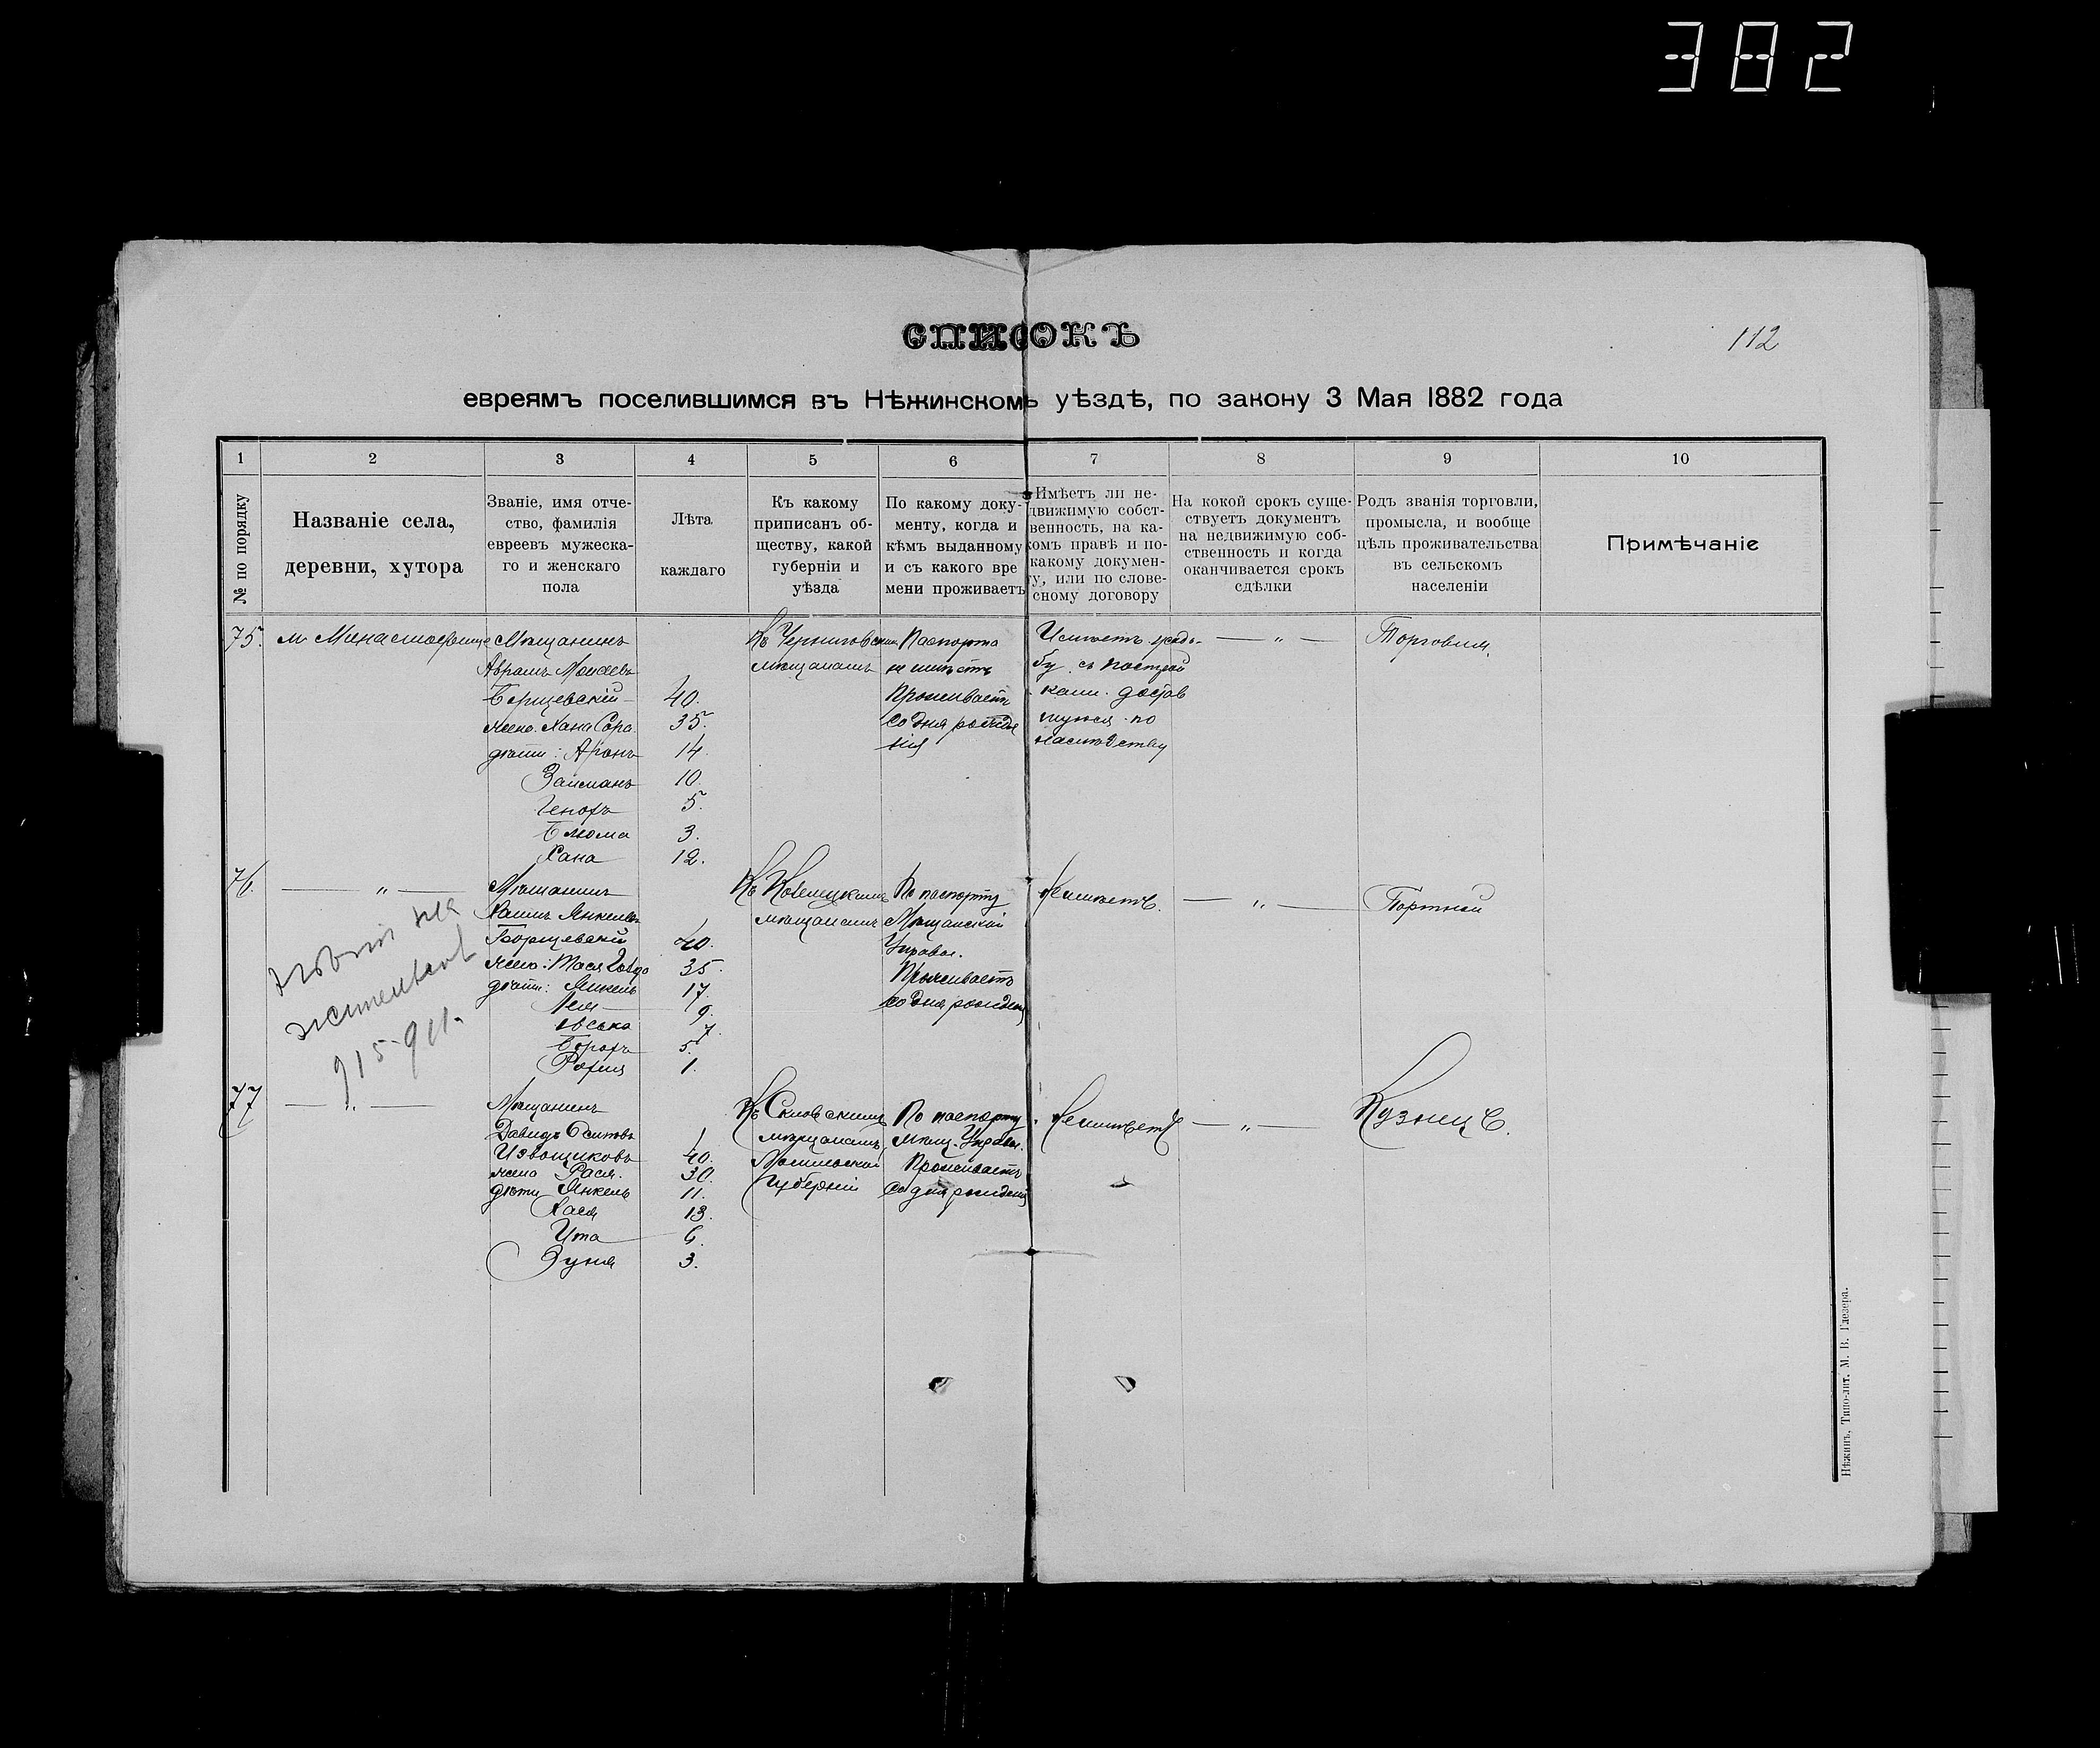 382
СПИСОКЪ
112
евреямъ поселившимся въ Нѣжинскомъ уѣздѣ, по закону 3 Мая 1882 года
1 2 3 4 5 6 7 8 9 10
№ по порядку
Названіе села,
деревни, хутора
Званіе, имя отче-
ство, фамилія
евреевъ мужеска-
го и женскаго
пола
Лѣта
каждаго
Къ какому
приписанъ об-
ществу, какой
губерніи и
уѣзда
По какому доку-
менту, когда и
кѣмъ выданному
и съ какого вре
мени проживаетъ
Имѣетъ ли не-
движимую собст-
венность, на ка-
комъ правѣ и по-
какому докумен-
ту, или по слове-
сному договору
На кокой срокъ суще-
ствуетъ документъ
на недвижимую соб-
ственность и когда
оканчивается срокъ
сдѣлки
Родъ званія торговли,
промысла, и вообще
цѣль проживательства
въ сельскомъ
населеніи
Примѣчаніе
75. м. Монастырище
Мѣщанинъ
Аврамъ Моисеевъ
Борщевскій 40.
жена Хана Сора 35.
дѣти: Аронъ 14.
Займанъ 10.
5.
Блюма 3.
Хана 12.
Къ Черниговскимъ
мѣщанамъ
Паспорта
не имѣетъ
Проживаетъ
со дня рожде
нія
Имѣетъ усадь-
бу съ построй
ками достав
шуюся по
наслѣдству
— „ —
Торговля.
76. — „ —
Мѣщанинъ
Хаимъ Янкелевъ
Борщевскій 40.
жена: Тася 35.
дѣти: Янкель 17.
Лея 9.
Іоська 7.
Борохъ 5.
1.
мѣщанамъ
По паспорту
Мѣщанской
Управы.
Проживаетъ
со дня рожденія
Не имѣетъ.
— „ —
Портной
915-911.
77 — „ —
Мѣщанинъ
Давидъ Осиповъ
Извощиковъ 40.
жена Рася. 30.
дѣти Янкель 11.
Хася 13.
Ита 6.
Зуня 3.
мѣщанамъ
Могилевской
Губерніи
По паспорту
мѣщ. Управы.
Проживаетъ
со дня рожденія
Не имѣетъ
— „ —
Кузнецъ.
Нѣжинъ, Типо-лит. М. В. Глезера.